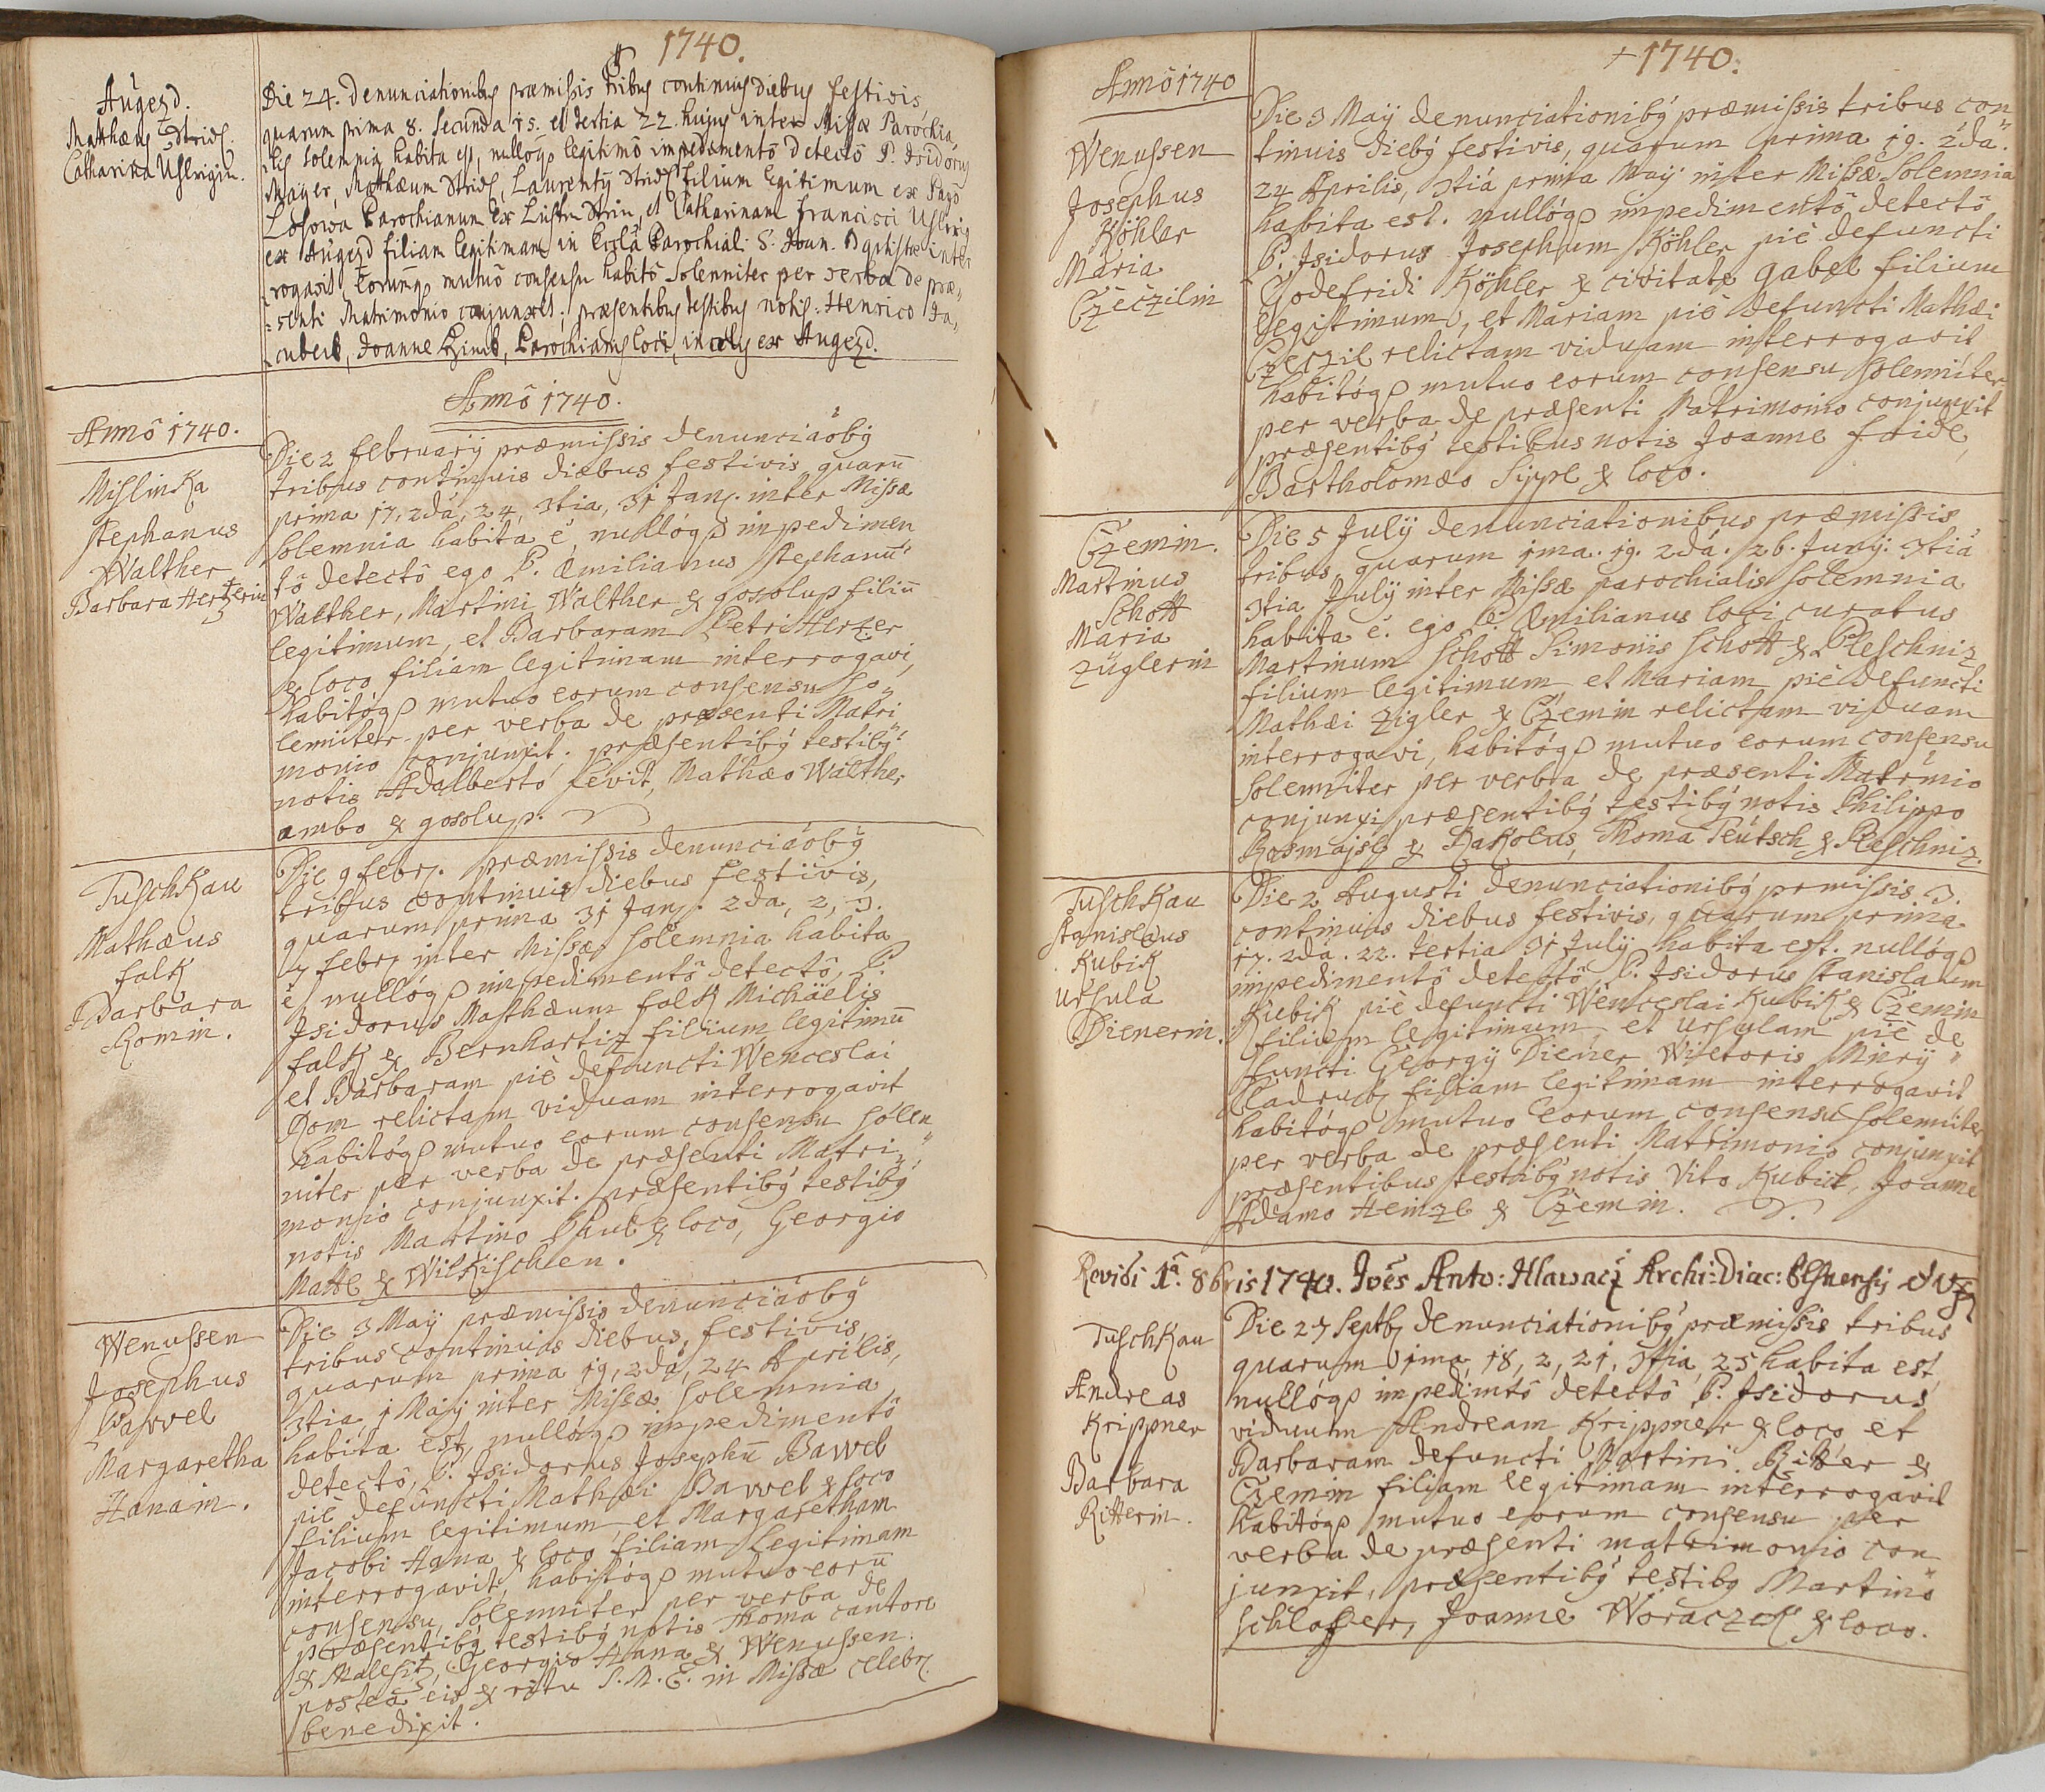 1740.
Augezd.
Mathæus Strids.
Catharina Uhlrigin.
Die 24. denunciationibus præmissis tribus continuis diebus festivis,
quarum prima 8. secunda 15. et tertia 22. hujus inter Missæ Parochia-
lis solemnia habita est, nullóq impedimentô detectô P. Isidorus
Mayer, Mathæum Strids, Laurentÿ Strids filium legitimum ex Pago
Parochianum et Catharinam Francisci Uhlrig
ex Augezd filiam legitimam in Parochiali S. Joan. Baptistæ inter
rogavit Eorumq mutuô consensu habitô Solemniter per verba de præ-
senti Matrimonio conjunxit; præsentibus testibus notis: Henrico
Joanne Parochianis loci, ex Augezd.
Annô 1740.
Annô 1740.
Mislinka
Stephanus
Walther
Barbara Hertzerin
Die 2 februarÿ præmissis denunciãobꝯ
tribus continuis diebus festivis quarũ
prima 17, 2dá, 24, 3tia, 31 Jan. inter Missæ
solemnia habita é, nullóq impedimen
tô detectô ego P. Æmilianus Stephanũ
Walther, Martini Walther & gosolup filiũ
legitimum, et Barbaram Petri Hertzer
& loco filiam legitimam interrogavi,
habitóq mutuo eorum consensu so"
lemiter per verba de præsenti Matri"
monio conjunxit. præsentibꝯ testibꝯ
notis Adalberto fevit, Mathæo Walther
ambo & gosolup.
Tuschkau
Mathæus
falk
Barbara
Romin.
Die 9 febr. præmissis denunciáobꝯ
tribus continuis diebus festivis,
quarum prima 31 Jan. 2da, 2, 3.
7 febr. inter Missæ solemnia habita
é, nullóq impedimentô detectô, P.
Isidorus Mathæum falk Michäelis
falk & Bernhartiz filium legitimũ
et Barbaram piè defuncti Wenceslai
Rom relictam viduam interrogavit
habitóq mutuo eorum consensu solem
niter per verba de præsenti Matri"
monio conjunxit. præsentibꝯ testibꝯ
notis Martino Paul & loco, Georgio
Mattl & Wilkischen.
Wenussen
Josephus
Pawel
Margaretha
Hanain.
Die 3 Maÿ præmissis denunciáobꝯ
tribus continuis diebus, festivis,
quarum prima 19, 2dá, 24 Aprilis,
3tia 1 Maÿ inter Missæ solemnia
habita est, nullóq impedimentô
detectô, P. Isidorus Josephũ Bawel
piè defuncti Mathæi Bawel & loco
filium legitimum et Margaretham
Jacobi Hana & loco filiam legitimam
interrogavit, habitóq mutuo eorũ
consensu, solemniter per verba de
præsentibꝯ testibꝯ notis Thoma cantore
& Malesitz, Georgio Hana & Wenussen.
postea eis & ritu S. M. E. in Missa celebr.
benedixit.
+1740:
Annô 1740
Wenussen
Josephus
Köhler
Maria
Czeczilin
Die 3 Maÿ denunciationibꝯ præmissis tribus con"
tinuis diebꝯ festivis, quarum prima 19. 2da.
24 Aprilis, 3tiá prima Maÿ inter Missæ Solemnia
habita est. nullóq impedimentô detectô
P. Isidorus Josephum Köhler piè defuncti
Godefridi Köhler & civitate gabel filium
legitimum, et Mariam piè defuncti Mathæi
Czeczil relictam viduam interrogavit
habitóq mutuo eorum consensu solemniter
per verba de præsenti Matrimonio conjunxit
præsentibꝯ testibus notis Joanne fride,
Bartholomæo Sippl & loco.
Czemin.
Martinus
Schott
Maria
Züglerin
Die 5 Julÿ denunciationibus præmissis
tribus, quarum 1ma. 19. 2dá. 26. Junÿ. 3tia
3tia Julÿ inter Missæ parochialis solemnia
habita é. ego P. Æmilianus loci curatus
Martinum Schott Simonis Schott & Pleschniz
filium legitimum et Mariam piè defuncti
Mathæi Zigler & Czemin relictam viduam
interrogavi, habitóq mutuo eorum consensu
solemniter per verba de præsenti Matrimio
conjunxi, præsentibꝯ testibꝯ notis Philippo
Kosmajsl & Rakolus, Thoma Teütsch & Pleschniz.
Tuschkau
Stanislaus
Kubik
Ursula
Dienerin.
Die 2 Augusti denunciationibꝯ prmissis 3.
continuis diebus festivis, quarum prima
17. 2dá. 22. tertia 31 Julÿ habita est. nullóq
impedimentô detectô P. Isidorus Stanislaum
Kubik piè defuncti Wenceslai Kubik & Czemin
filium legitimum, et Ursulam piè de
functi Georgÿ Diener Wietoris
Kladrub filiam legitimam interrogavit
habitóq mutuo eorum consensu solemniter
per verba de præsenti Matrimonio conjunxit
præsentibus testibꝯ notis Vito Kubick, Joanne
Adamo Heinzl & Czemin.
Revidi 1ª. 8bris 1740. Joẽs Anto: Hlawacz Archi-Diac: Plsnensis
Tuschkau
Andreas
Krippner
Barbara
Ritterin.
Die 27 Septb denunciationibꝯ præmissis tribus
quarum 1ma, 18, 2, 21, 3tia, 25 habita est
nullóq impedimtô detectô P. Isidorus
viduum Andream Krippner & loco et
Barbaram defuncti Martini Ritter &
Czemin filiam legitimam interrogavit
habitóq mutuo eorum consensu per
verba de præsenti matrimonio con
junxit, præsentibꝯ testibꝯ Martino
Schlosser, Joanne Woraczek & loco.